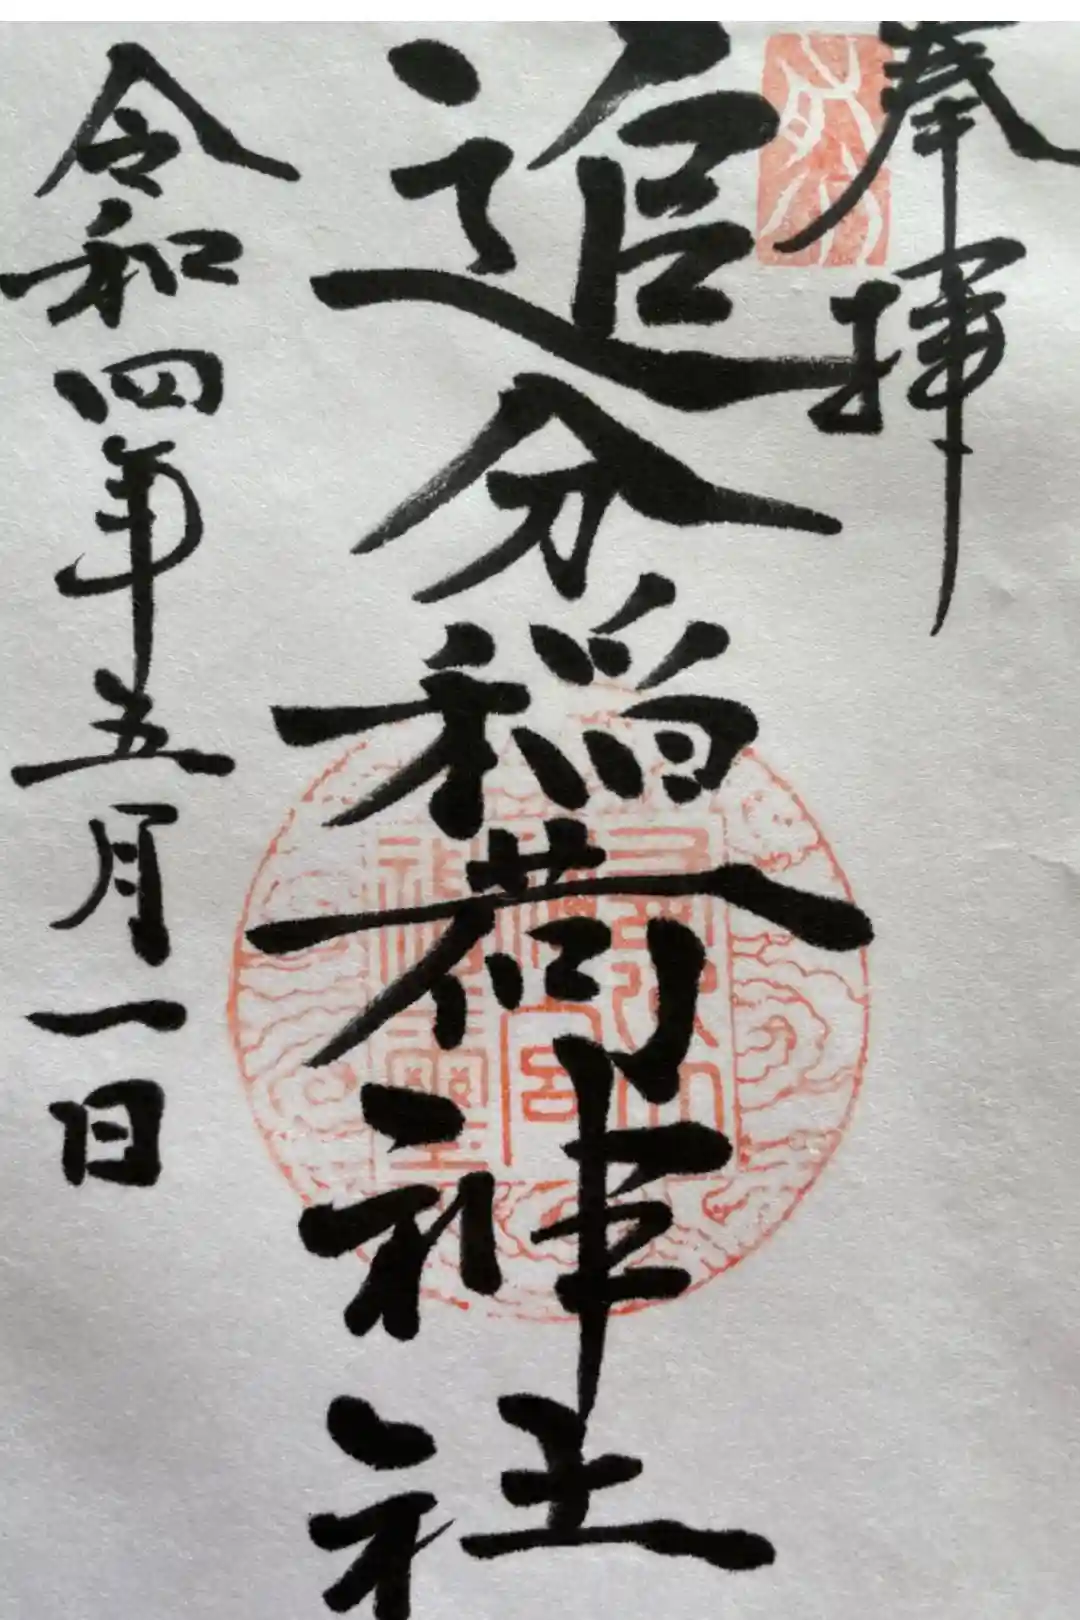 奉拝
追分稲荷神社
令和四年五月一日